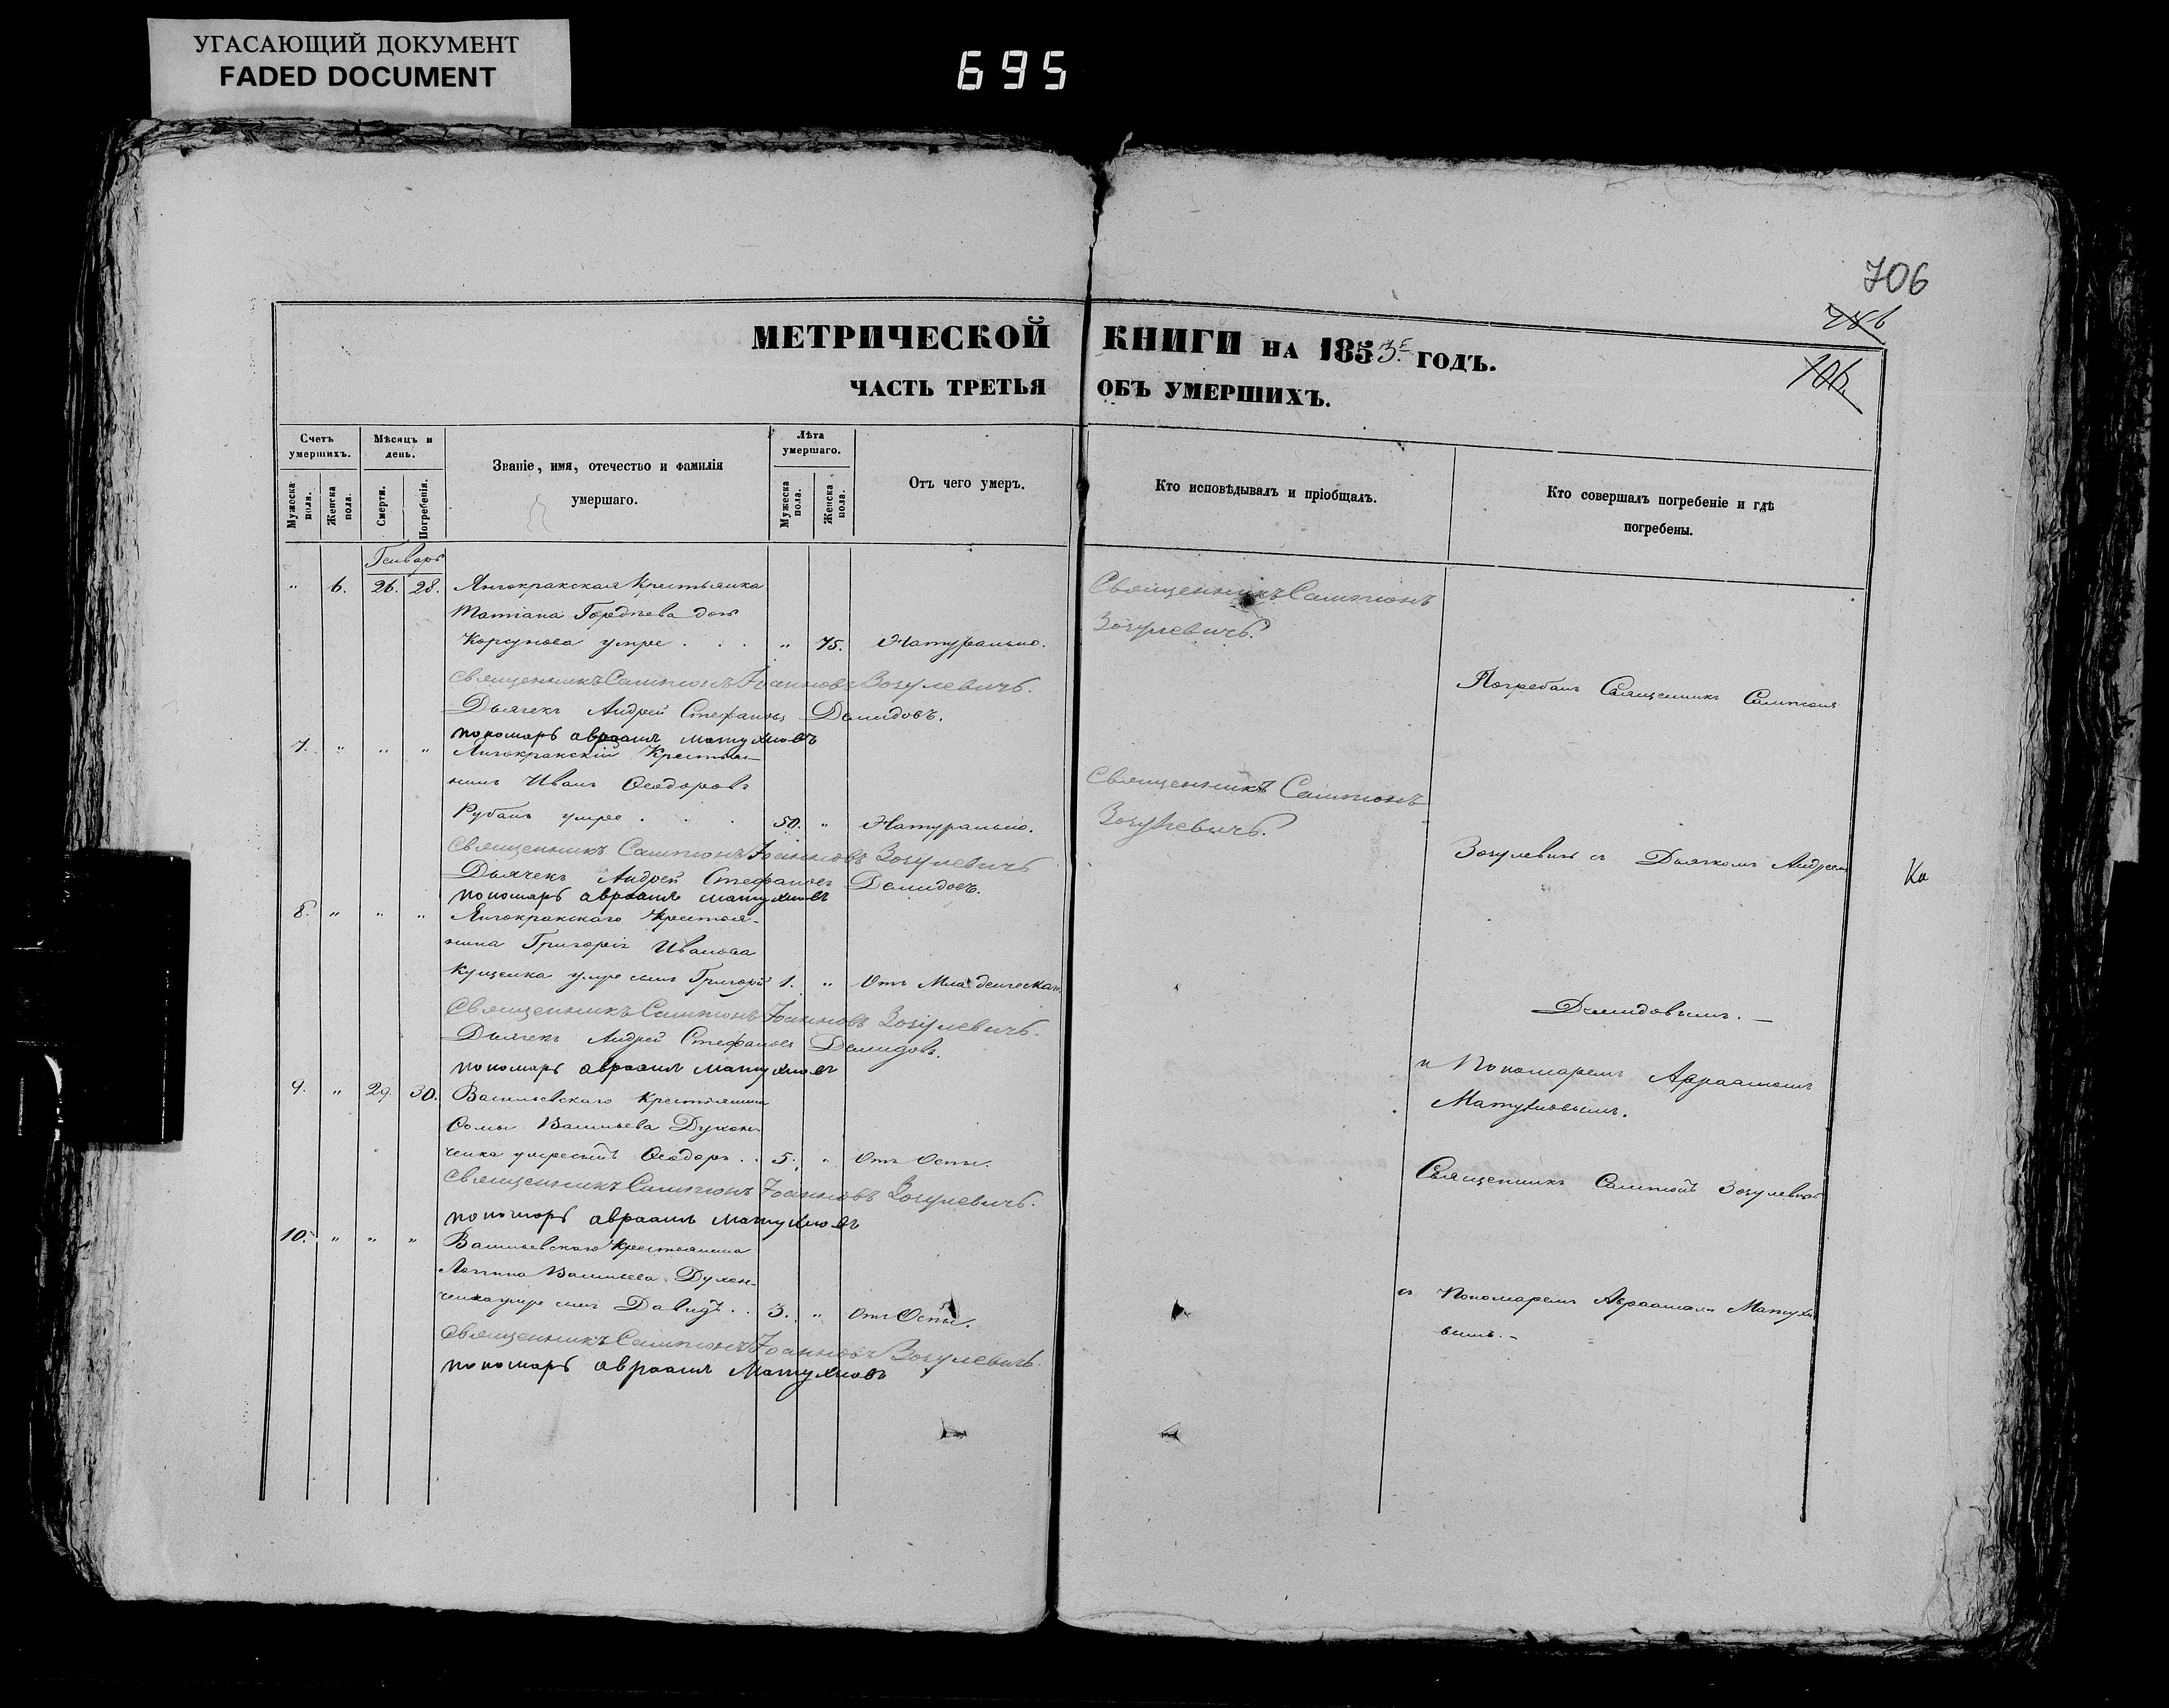 УГАСАЮЩИЙ ДОКУМЕНТ
FADED DOCUMENT
695
706
МЕТРИЧЕСКОЙ КНИГИ НА 1853 ГОДЪ.
ЧАСТЬ ТРЕТЬЯ ОБЪ УМЕРШИХЪ.
Счетъ умершихъ.
Мужеска пола.
Женска пола.
Мѣсяцъ и день.
Смерти.
Погребенія.
Званіе, имя, отечество и фамилія умершаго.
Лѣта умершаго.
Мужеска пола.
Женска пола.
Отъ чего умеръ.
Кто исповѣдывалъ и пріобщалъ.
Кто совершалъ погребеніе и гдѣ погребены.
Генварь
" 6. 26. 28. Крестьянка
Татіана Гордѣева дочь
Корсунова умре . . . " 75. Натурально.
Священникъ Сампсонъ
Зозулевичь.
Священникъ Сампсонъ Іоанновъ Зозулевичь.
Дьячекъ Андрей Стефановъ Демидовъ.
пономарь авраамъ матухновъ
Погребалъ Священникъ Сампсонъ
7. " " " Крестья-
нинъ Иванъ Ѳеодоровъ
Рубанъ умре . . . 50. " Натурально.
Священникъ Сампсонъ
Зозулевичь.
Священникъ Сампсонъ Іоанновъ Зозулевичь
Дьячекъ Андрей Стефановъ Демидовъ.
пономарь авраамъ матухновъ
Зозулевичь съ Дьячкомъ Андреемъ
Ка
8. " " " Крестья-
нина Григорія Иванова
Куценка умре сынъ Григорій 1. " Отъ Младенческаго.
Священникъ Сампсонъ Іоанновъ Зозулевичь.
Дьячекъ Андрей Стефановъ Демидовъ.
пономарь авраамъ матухновъ
Демидовымъ. —
и Пономаремъ Авраамомъ
Матухновымъ.
9. " 29. 30. Васильевскаго Крестьянина
Ѳомы Васильева Духон-
ченка умре сынъ Ѳеодоръ . . 5. " Отъ Оспы.
Священникъ Сампсонъ Іоанновъ Зозулевичь.
пономарь авраамъ матухновъ
Священникъ Сампсонъ Зозулевичь
10. " " " Васильевскаго Крестьянина
Логгина Васильева Духон-
ченка умре сынъ Давидъ . . 3. " Отъ Оспы.
Священникъ Сампсонъ Іоанновъ Зозулевичь.
пономарь авраамъ Матухновъ
съ Пономаремъ Авраамомъ Матухно
вымъ. –